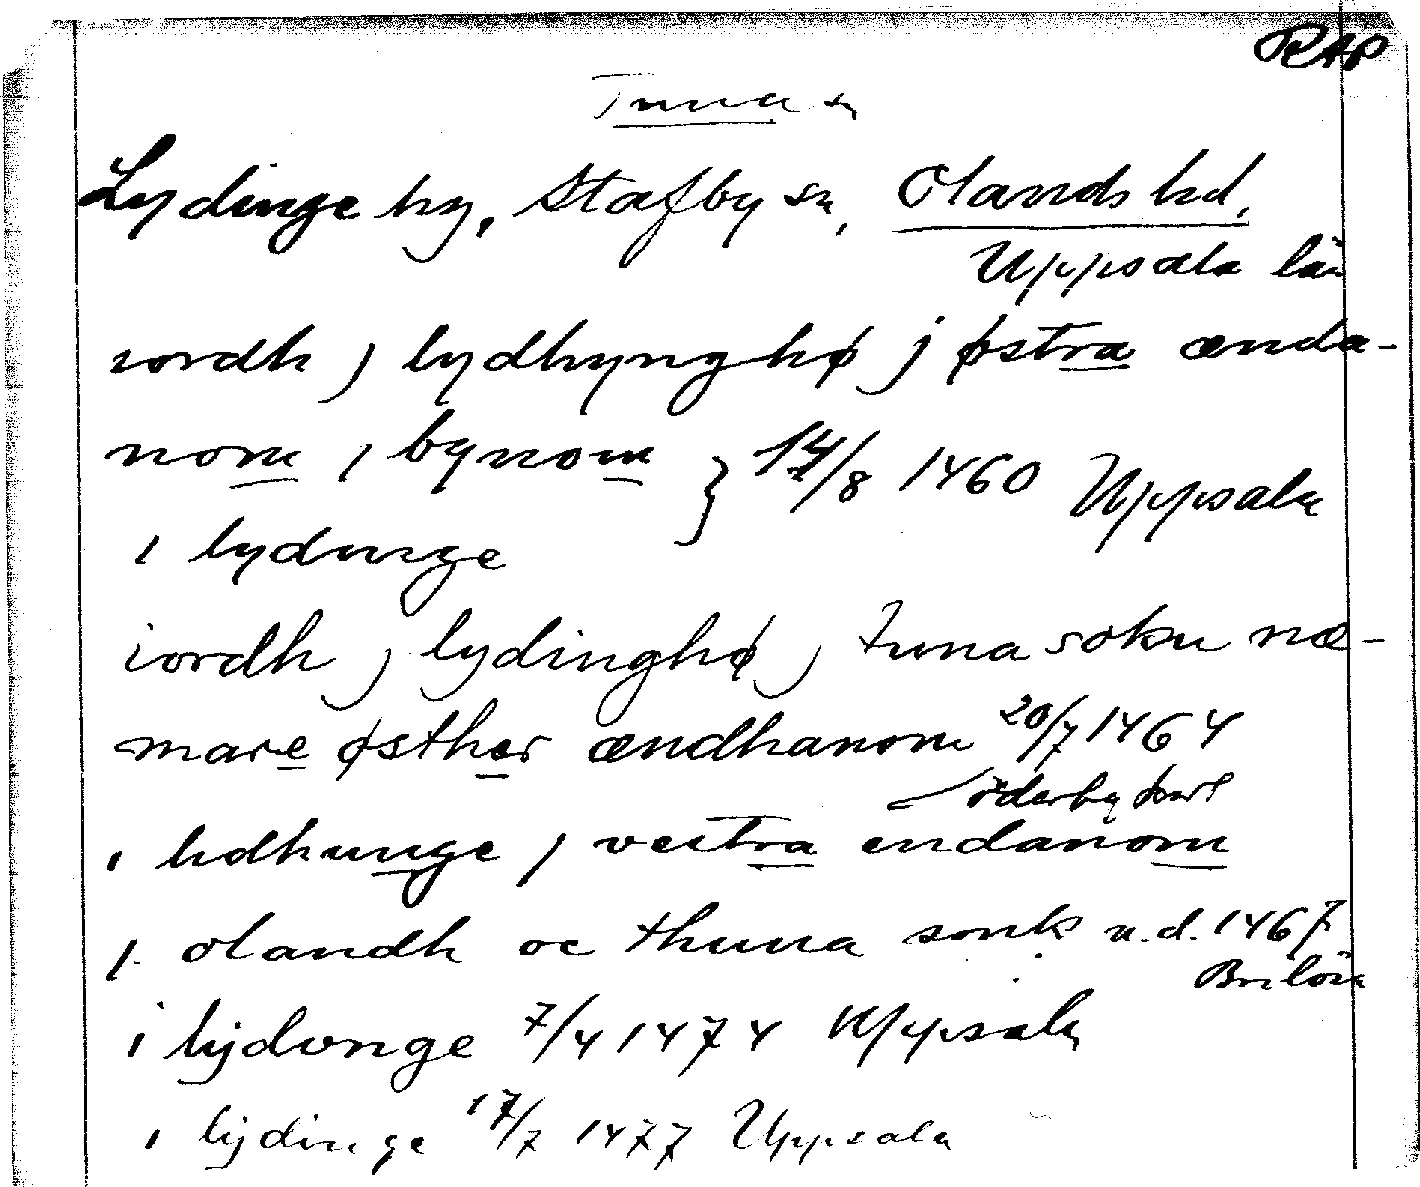 RAP
Tuna sn
Lydinge by, Stafby sn, Olands hd,
Uppsala län
iordh j lydhynghø j østra ænda-
nom i bynom } 14/8 1460 Uppsala
i lydinge
iordh j lydinghø j tuna soku næ-
mare østher ændhanom 20/7 1464
Söderby karl
i lidhunge j vestra endanom
j olandh oc thuna sonk u.d. 1467
i lijdonge 7/4 1474 Uppsala
i lijdinge 17/7 1477 Uppsala